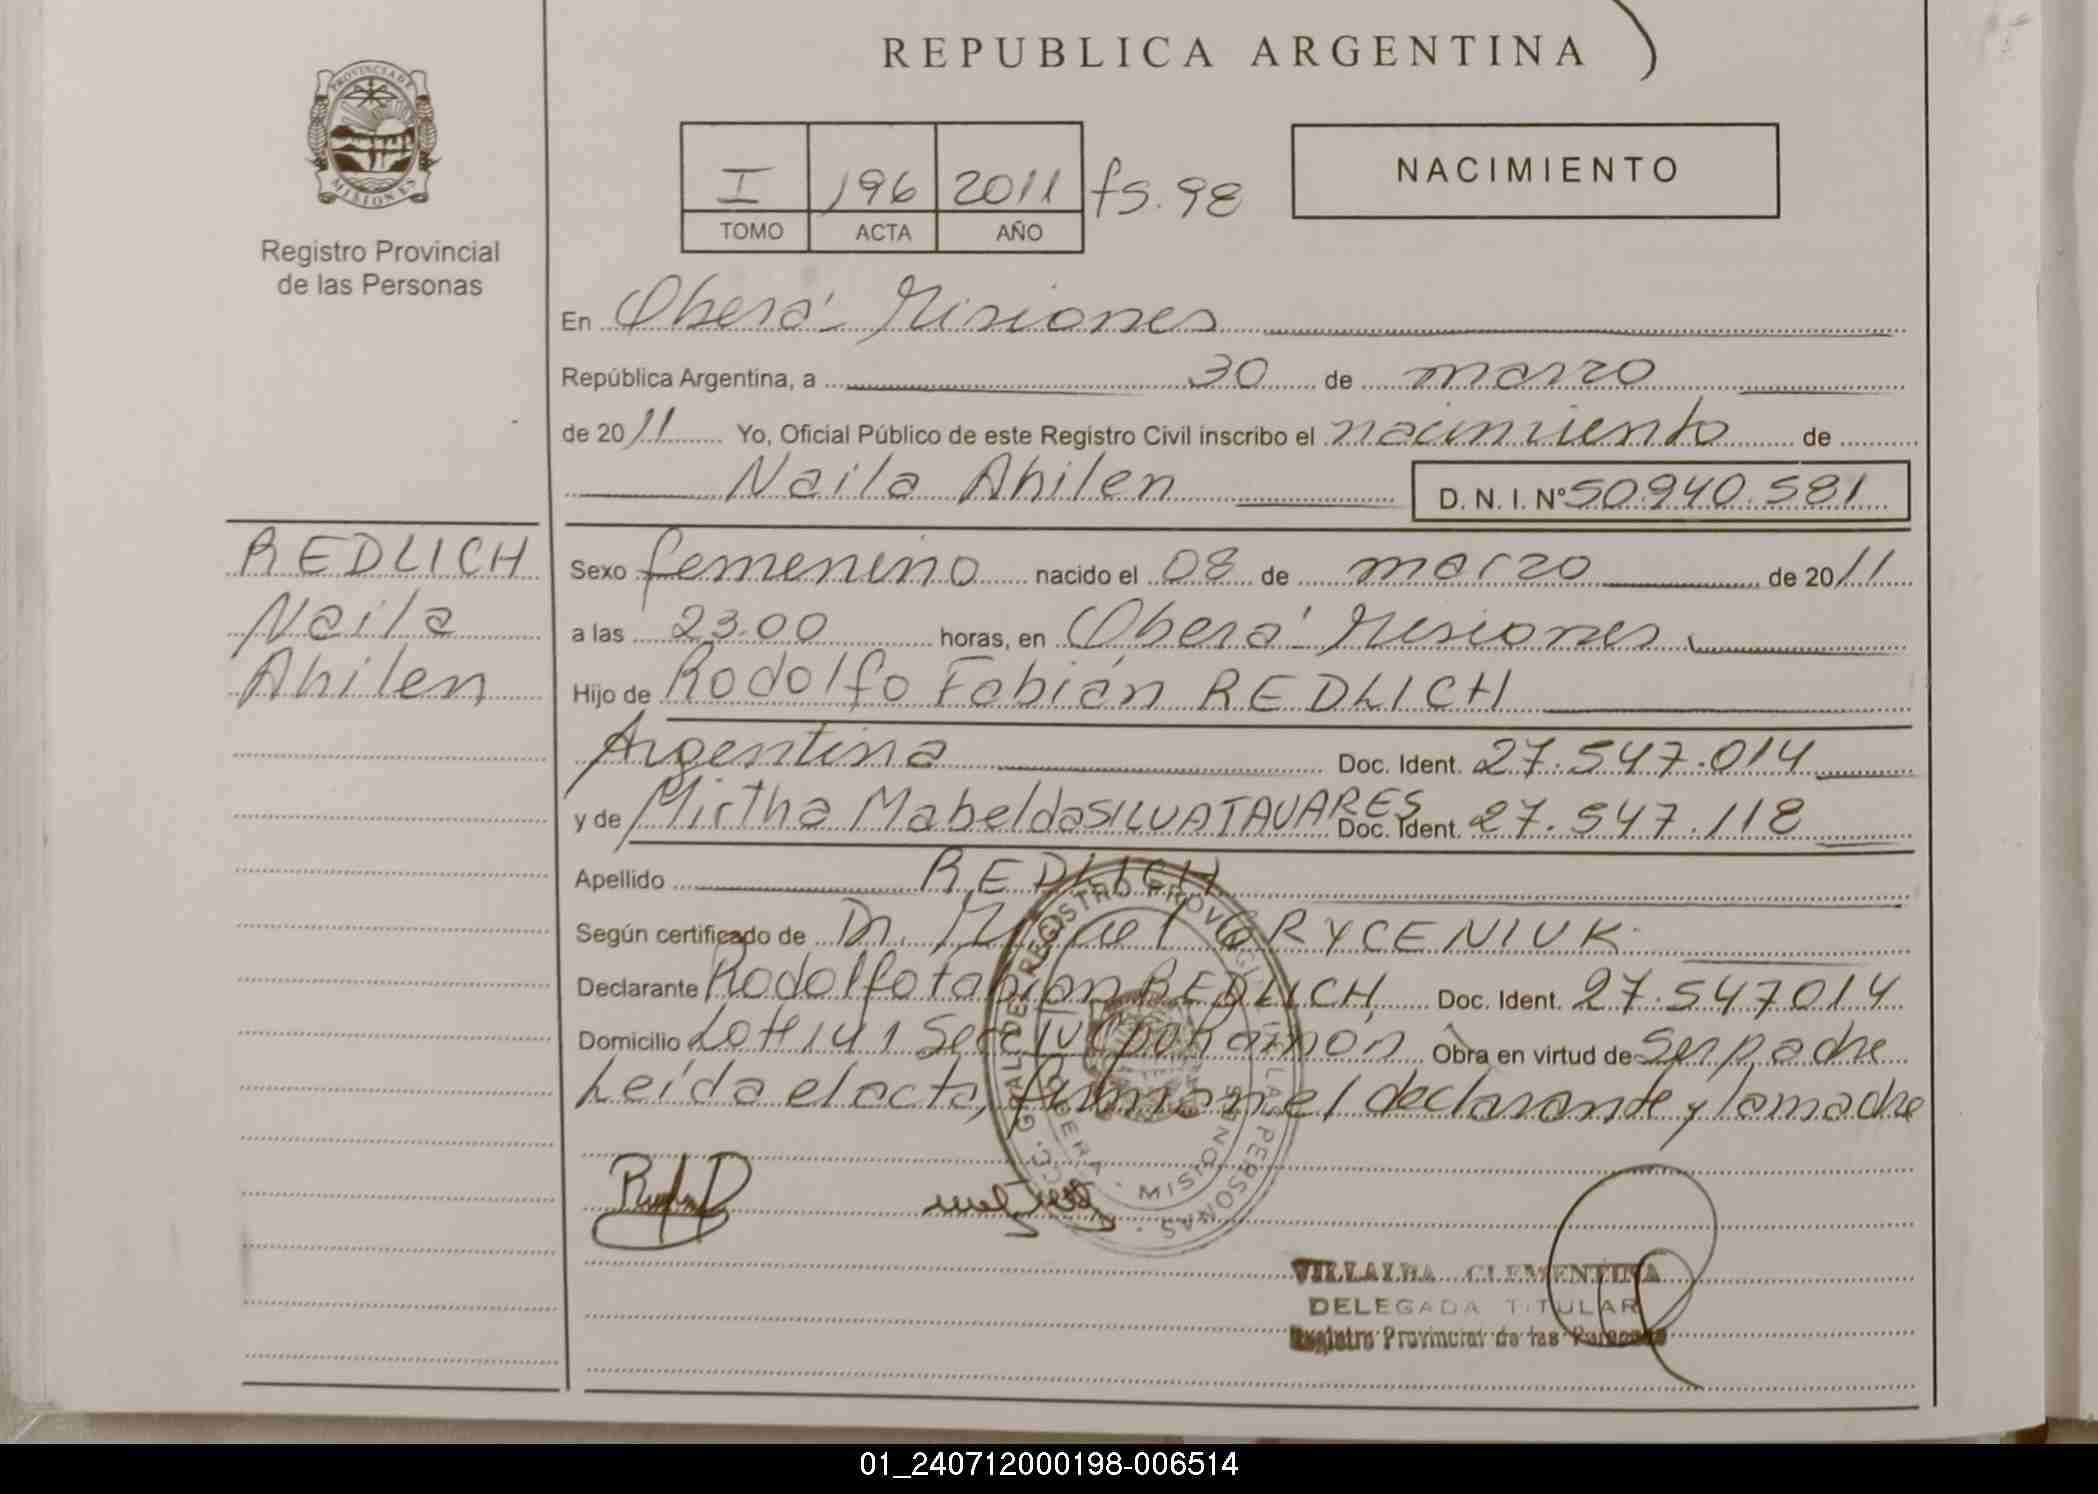 REPUBLICA ARGENTINA
PROVINCIA DE MISIONES
Registro Provincial
de las Personas
I 196 2011 fs. 98
TOMO ACTA AÑO
NACIMIENTO
En Oberá Misiones
República Argentina, a 30 de marzo
de 2011 Yo, Oficial Público de este Registro Civil inscribo el nacimiento de
Naila Ahilen D. N. I. Nº 50.940.581
REDLICH
Naila
Ahilen
Sexo femenino nacido el 08 de marzo de 2011
a las 23.00 horas, en Oberá Misiones
Hijo de Rodolfo Fabián REDLICH
Argentina Doc. Ident. 27.547.014
y de Mirtha Mabel da SILVA TAVARES Doc. Ident. 27.547.118
Apellido REDLICH
Según certificado de Dr. GRYCENIUK
Declarante Rodolfo Fabián REDLICH Doc. Ident. 27.547014
Domicilio Lott 141 Obra en virtud de Ser padre
Leída el acta, firman el declarante y la madre
REGISTRO PERSONAS
MISIONES
VILLALBA CLEMENTINA
DELEGADA TITULAR
Registro Provincial de las Personas
01_240712000198-006514